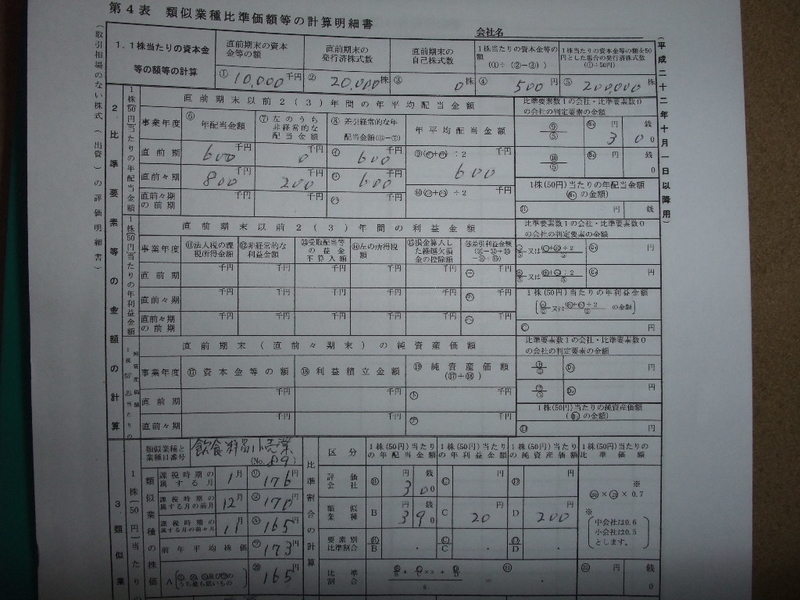 第4表 類似業種比準価額等の計算明細書
会社名
(平成二十二年十月一日以降用)
(取引相場のない株式(出資)の評価明細書)
1.1株当たりの資本金等の額等の計算
直前期末の資本金等の額
直前期末の発行済株式数
直前期末の自己株式数
1株当たりの資本金等の額 (①÷(②-③))
1株当たりの資本金等の額を50円とした場合の発行済株式数 (①÷50円)
① 10,000 千円
② 20,000 株
③ 0 株
④ 500 円
⑤ 200,000 株
2 比準要素等の金額の計算
1株50円当たりの年配当金額
直前期末以前2(3)年間の年平均配当金額
比準要素数1の会社・比準要素数0の会社の判定要素の金額
事業年度
⑥ 年配当金額
⑦ 左のうち非経常的な配当金額
⑧ 差引経常的な年配当金額(⑥-⑦)
年平均配当金額
直前期 600 0 600
600
直前々期 800 200 600
直前々期の前期
円 銭
3 00
1株(50円)当たりの年配当金額
1株50円当たりの年利益金額
直前期末以前2(3)年間の利益金額
比準要素数1の会社・比準要素数0の会社の判定要素の金額
事業年度
⑪法人税の課税所得金額
⑫非経常的な利益金額
⑬受取配当等の益金不算入額
⑭左の所得税額
⑮損金算入した繰越欠損金の控除額
⑯差引利益金額
直前期
直前々期
直前々期の前期
1株(50円)当たりの年利益金額
直前期末(直前々期末)の純資産価額
比準要素数1の会社・比準要素数0の会社の判定要素の金額
事業年度
⑰ 資本金等の額
⑱ 利益積立金額
⑲ 純資産価額(⑰+⑱)
直前期
直前々期
1株(50円)当たりの純資産価額
類似業種と業種目番号
飲食料品小売業
(No. 89)
課税時期の属する月 1月 176円
課税時期の属する月の前月 12月 170
課税時期の属する月の前々月 11月 165
前年平均株価 173
165
比準割合の計算
区分
1株(50円)当たりの年配当金額
1株(50円)当たりの年利益金額
1株(50円)当たりの純資産価額
1株(50円)当たりの比準価額
評価会社 3 00
類似業種 B 3 90 C 20 D 200
要素別比準割合
比準割合
×0.7
※
中会社は0.6
小会社は0.5
とします。